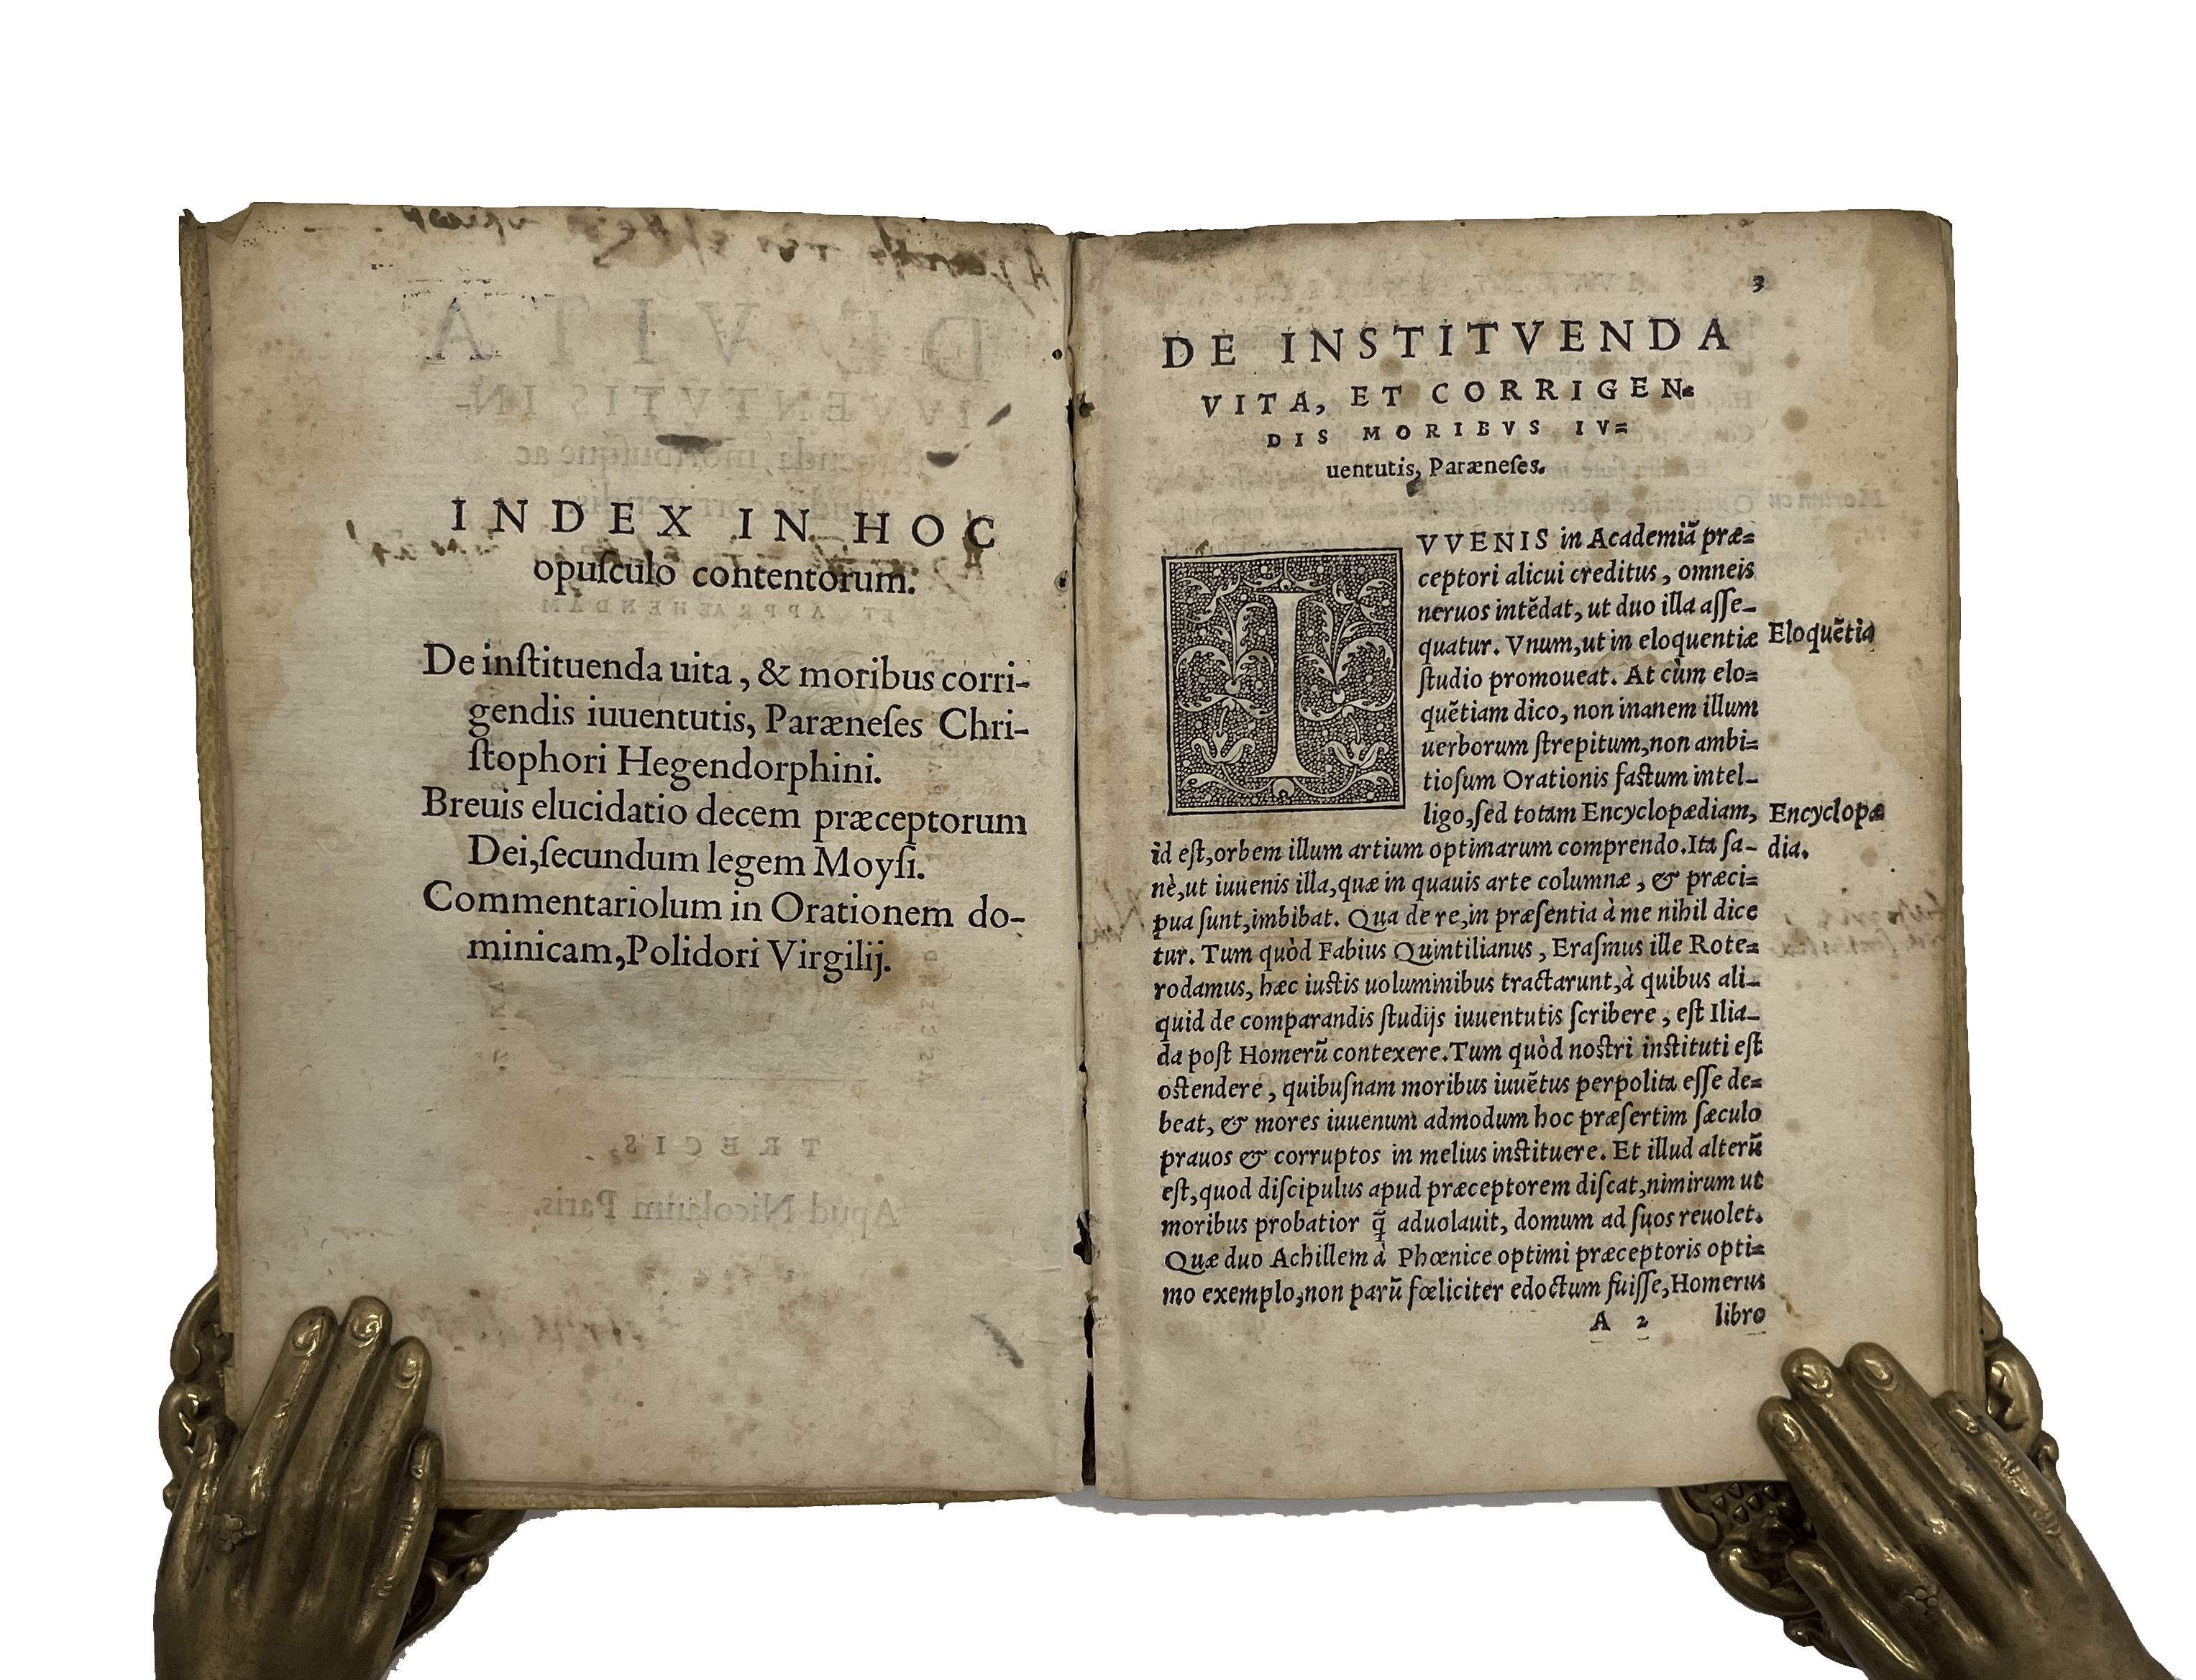 INDEX IN HOC
opuſculo contentorum.
De inſtituenda uita, & moribus corri-
gendis iuuentutis, Paræneſes Chri-
ſtophori Hegendorphini.
Breuis elucidatio decem præceptorum
Dei,ſecundum legem Moyſi.
Commentariolum in Orationem do-
minicam,Polidori Virgilij.
3
DE INSTITVENDA
VITA, ET CORRIGEN=
DIS MORIBVS IV=
uentutis, Paræneſes.
IVVENIS in Academiã præ=
ceptori alicui creditus, omneis
neruos intẽdat, ut duo illa aſſe-
quatur. Vnum,ut in eloquentiæ
Eloquẽtia
ſtudio promoueat. At cùm elo=
quẽtiam dico, non inanem illum
uerborum ſtrepitum,non ambi=
tioſum Orationis faſtum intel-
ligo,ſed totam Encyclopædiam,
Encyclopæ
id eſt,orbem illum artium optimarum comprendo.Ita ſa-
dia.
nè,ut iuuenis illa,quæ in quauis arte columnæ, & præci=
pua ſunt,imbibat. Qua de re,in præſentia à me nihil dice
tur. Tum quòd Fabius Quintilianus, Eraſmus ille Rote=
rodamus, hæc iuſtis uoluminibus tractarunt,à quibus ali-
quid de comparandis ſtudijs iuuentutis ſcribere, eſt Ilia-
da poſt Homerũ contexere.Tum quòd noſtri inſtituti eſt
oſtendere, quibuſnam moribus iuuẽtus perpolita eſſe de=
beat, & mores iuuenum admodum hoc præſertim ſæculo
prauos & corruptos in melius inſtituere. Et illud alterũ
eſt,quod diſcipulus apud præceptorem diſcat,nimirum ut
moribus probatior q̃ aduolauit, domum ad ſuos reuolet.
Quæ duo Achillem à Phœnice optimi præceptoris opti=
mo exemplo,non parũ fœliciter edoctum fuiſſe,Homerus
A 2 libro